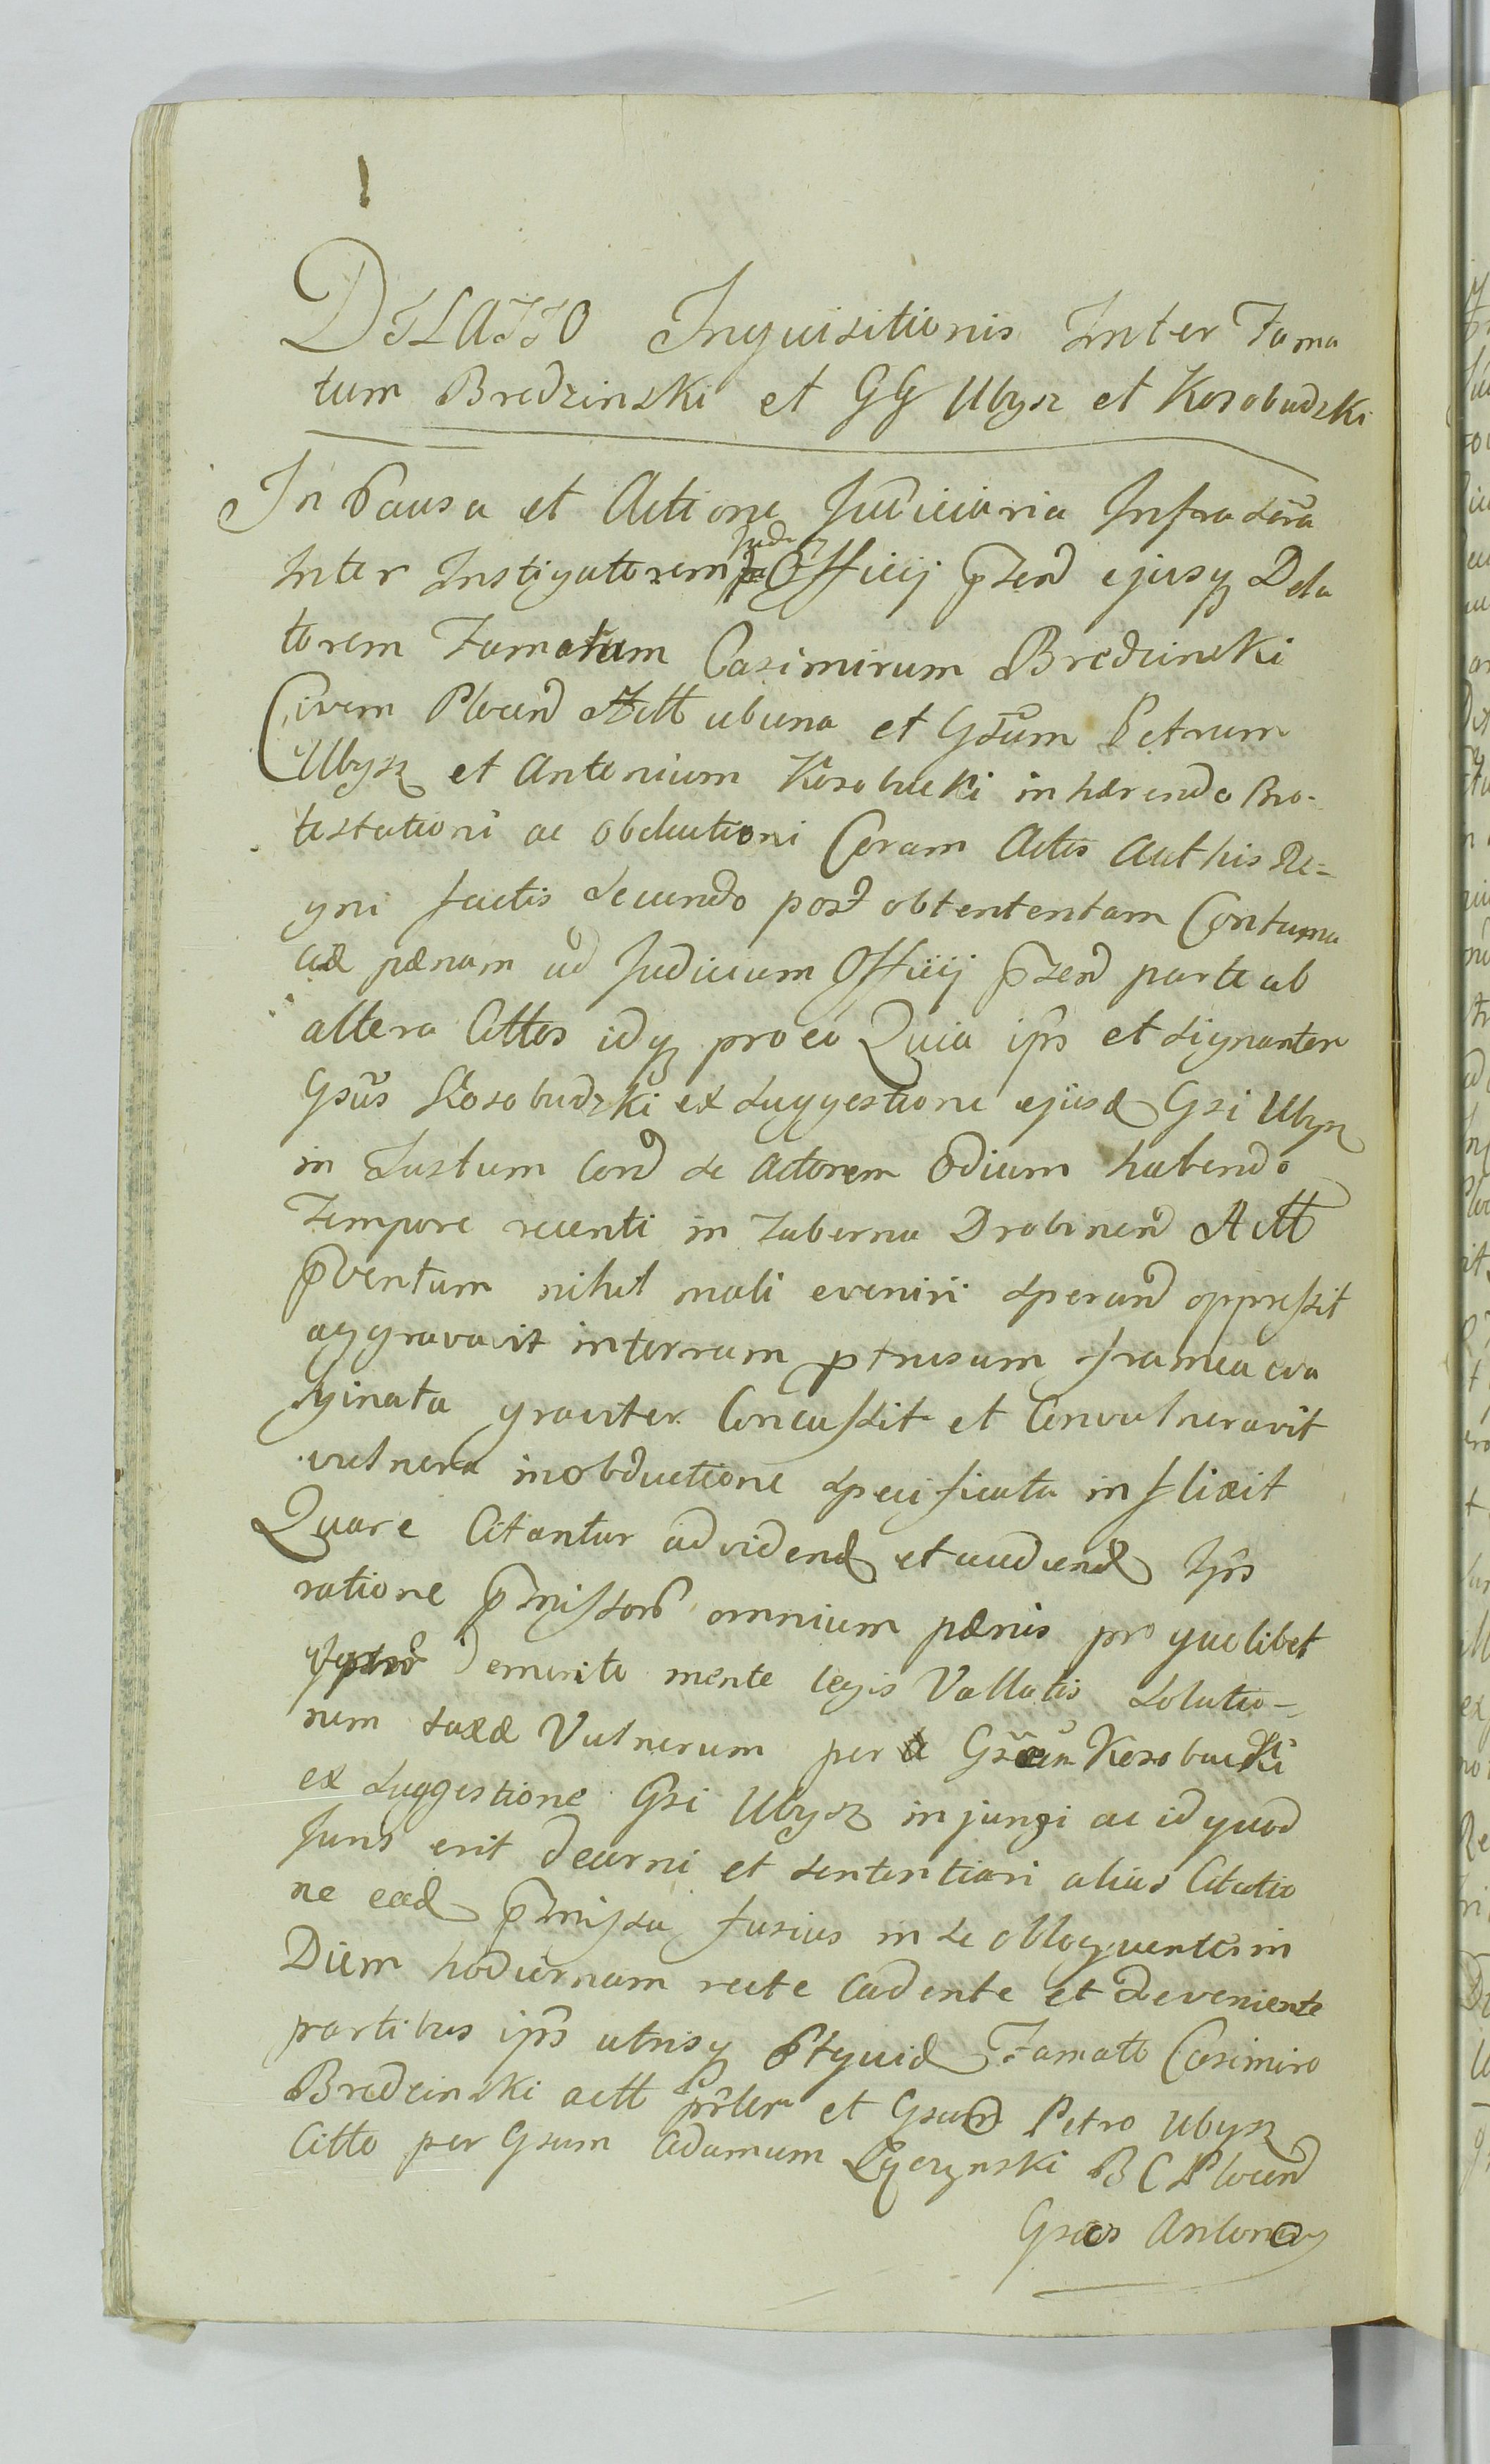 DILATIO Inquisitionis Inter Fama
tum Bredzinski et GG Ubysz et Kosobudzki
In Causa et Actione Judiciaria Infrascra
Inter Instigatorem Judz Officij p̃sen ejusq Dela
torem Famatum Casimirum Bredzinski
Civem Plocen Actt ab una et Gsum Petrum
Ubysz et Antonium Kosobucki in hærendo Pro-
testationi ac obductioni Coram Actis Authis Re=
gni factis secundo post obtententam Contuma
ciæ pænam ad Judicium Officij p̃sen parte ab
altera Cittos idq pro eo Quia ipsi et signanter
Gsus Kosobudzki ex suggestione ejusd Gsi Ubysz
in Justum Con se Actorem Odium habendo
Tempore recenti in Taberna Drobinen Actt
p̃ventum nihil mali eveniri speran oppressit
aggravavit in terram ptrusum framea eva
ginata graviter Concussit et Convulneravit
vulnera in obductione specificata inflixit
Quare Citantur ad vidend et audiend Ipsis
ratione p̃missor omnium pænis pro quolibet
Demerito mente legis Vallatis Solutio-
nem taxæ Vulnerum per Gsum Kosobucki
ex suggestione Gsi Ubysz injungi ac id quod
Juris erit decerni et sententiari alias Citatio
ne ead p̃missa fusius in se obloquente in
Diem hodiernam recte Cadente et deveniente
partibus ipsis utrisq Ptquid Famato Casimiro
Bredzinski actt p̃rter et Gsum Petro Ubysz
Citto per Gsum Adamum Lyczynski B C Plocen
Gsus Antonius